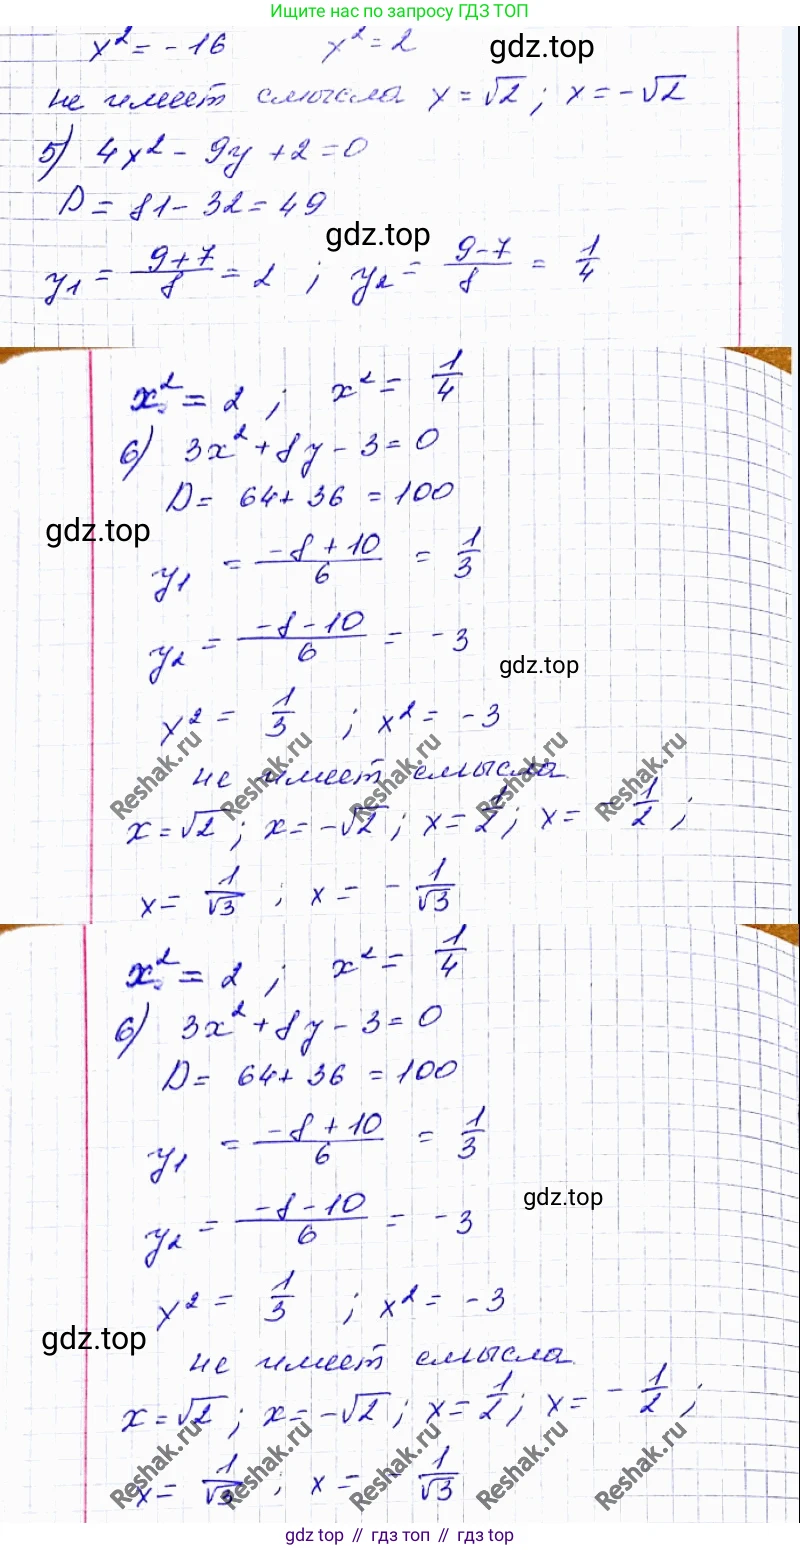 Ищите нас по запросу ГДЗ ТОП
x² = -16 x² = 2 gdz.top
не имеет смысла x = √2 ; x = -√2
5) 4x² - 9y + 2 = 0
D = 81 - 32 = 49
gdz.top
y₁ = (9+7)/8 = 2 ; y₂ = (9-7)/8 = 1/4
x² = 2 ; x² = 1/4
6) 3x² + 8y - 3 = 0
D = 64 + 36 = 100
gdz.top
y₁ = (-8+10)/6 = 1/3
y₂ = (-8-10)/6 = -3
gdz.top
x² = 1/3 ; x² = -3
не имеет смысла
Reshak.ru Reshak.ru Reshak.ru Reshak.ru Reshak.ru
x = √2 ; x = -√2 ; x = 1/2 ; x = -1/2 ;
x = 1/√3 ; x = -1/√3
x² = 2 ; x² = 1/4
6) 3x² + 8y - 3 = 0
D = 64 + 36 = 100
y₁ = (-8+10)/6 = 1/3
y₂ = (-8-10)/6 = -3
gdz.top
x² = 1/3 ; x² = -3
gdz.top
не имеет смысла
x = √2 ; x = -√2 ; x = 1/2 ; x = -1/2 ;
Reshak.ru Reshak.ru Reshak.ru Reshak.ru Reshak.ru
x = 1/√3 ; x = -1/√3
gdz top // гдз топ // gdz top